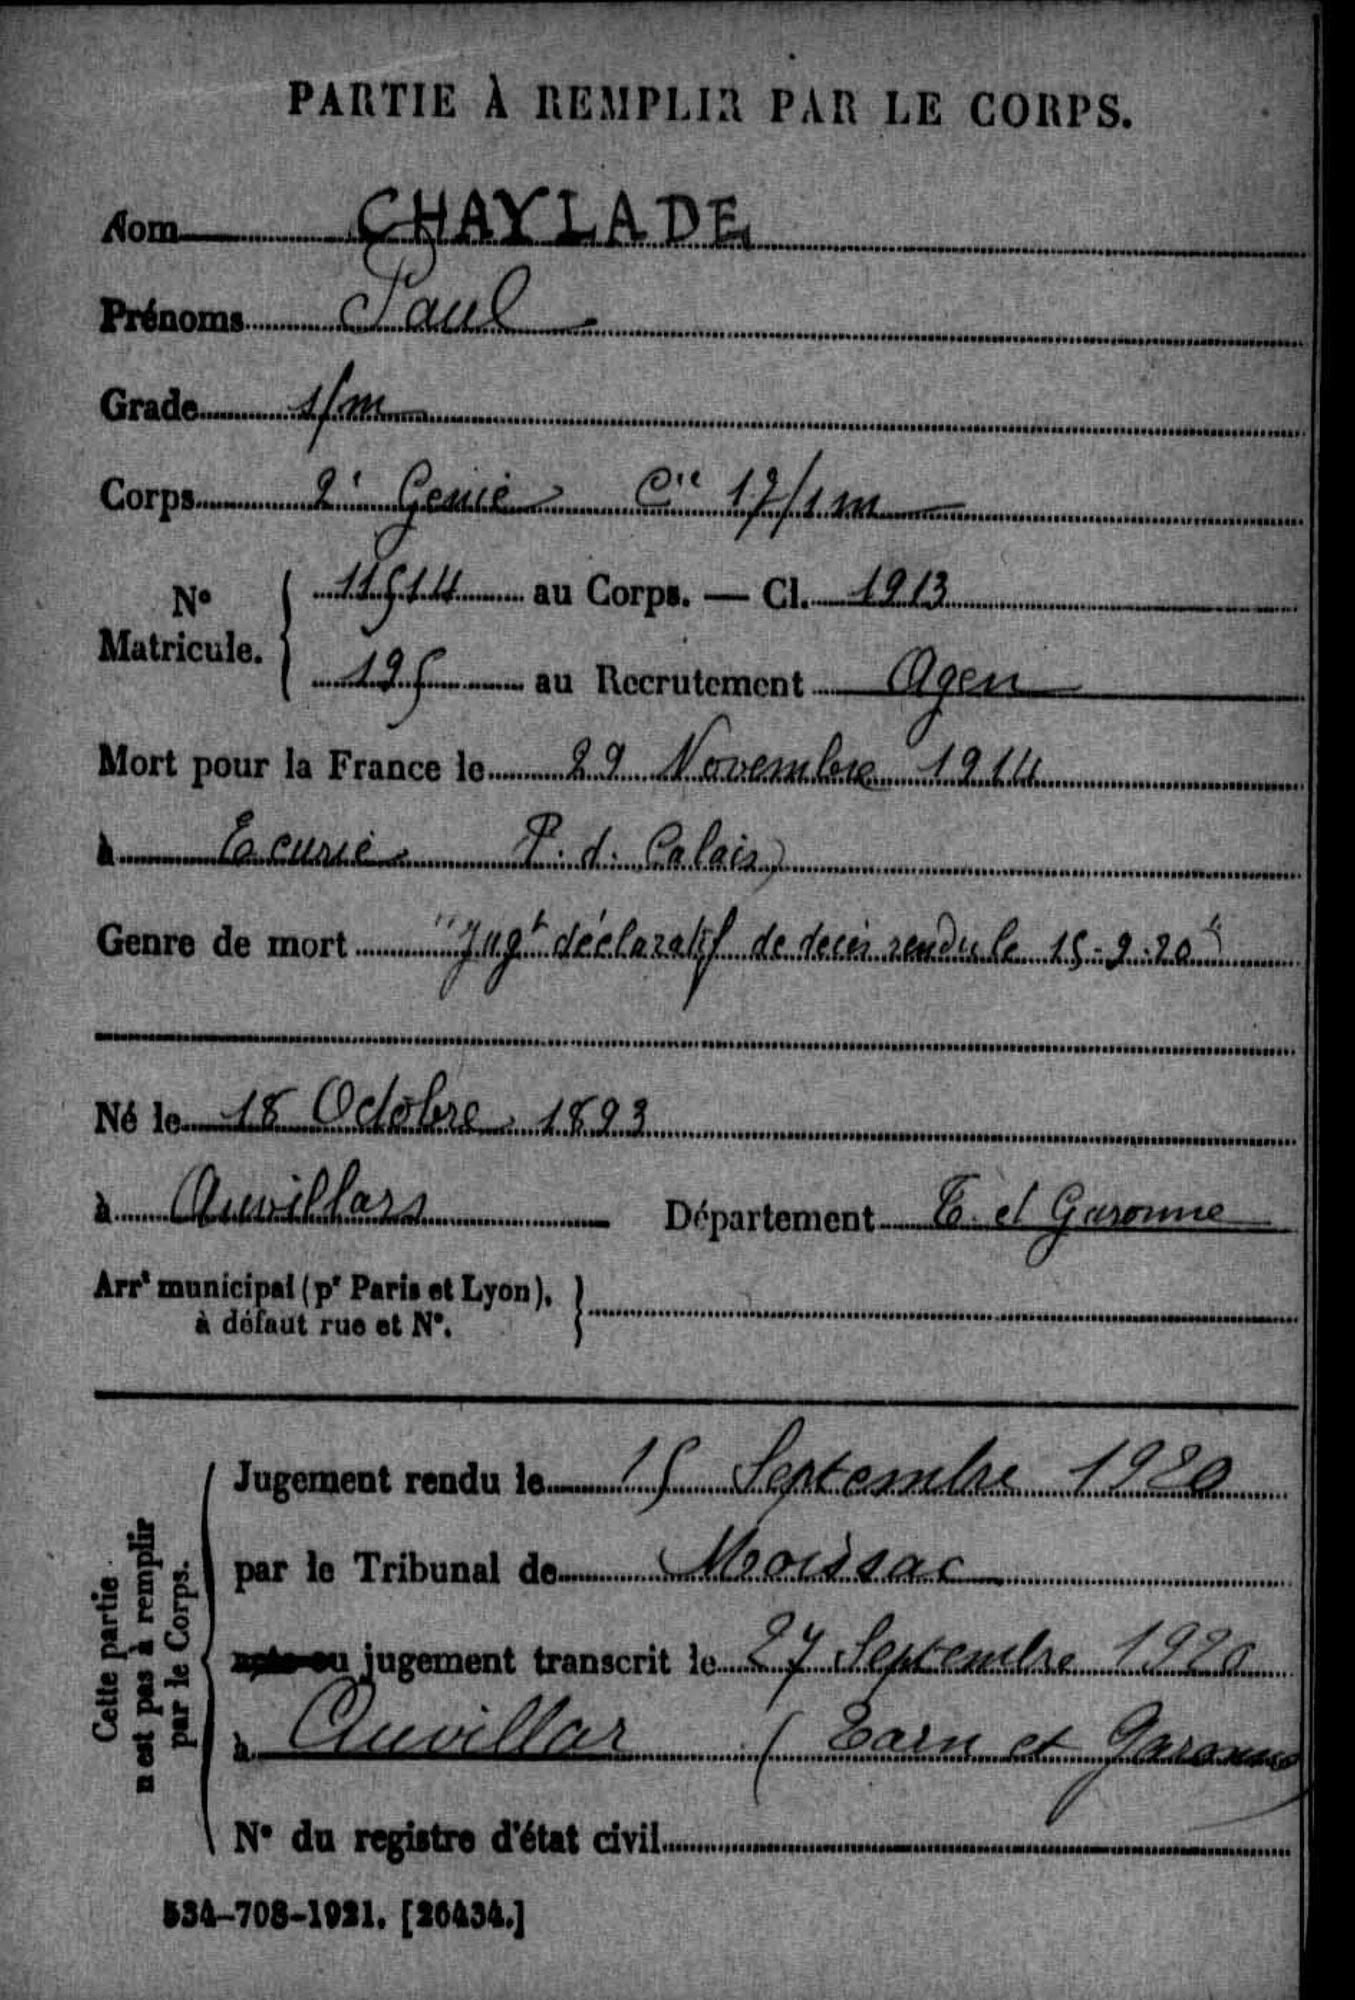 PARTIE À REMPLIR PAR LE CORPS.
Nom CHAYLADE
Prénoms Paul
Grade s/m
Corps 2e Génie Cie 17/1 m
No Matricule. { 11514 au Corps. — Cl. 1913
195 au Recrutement Agen
Mort pour la France le 29 Novembre 1914
à Ecurie P. d. Calais)
Genre de mort "Jugt déclaratif de décès rendu le 15-9-20"
Né le 18 Octobre 1893
à Auvillars Département T. et Garonne
Arrt municipal (pr Paris et Lyon),
à défaut rue et No. }
Cette partie
n'est pas à remplir
par le Corps.
Jugement rendu le 15 Septembre 1920
par le Tribunal de Moissac
acte ou jugement transcrit le 27 Septembre 1920
à Auvillar (Tarn et Garonne
No du registre d'état civil
534-708-1921. [26434.]